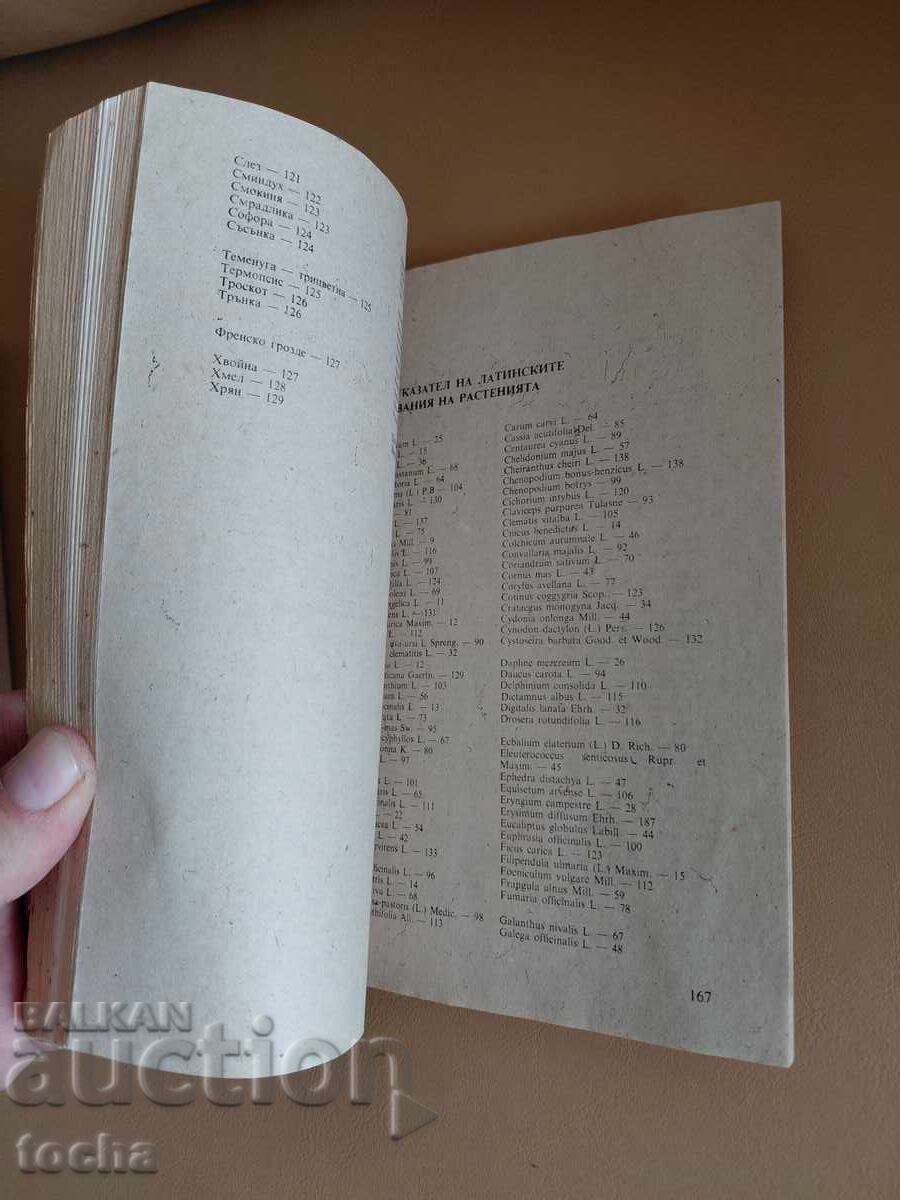 Слез — 121
Сминдух — 122
Смокиня — 123
Смрадлика — 123
Софора — 124
Съсънка — 124
Теменуга — трицветна — 125
Термопсис — 125
Троскот — 126
Трънка — 126
Френско грозде — 127
Хвойна — 127
Хмел — 128
Хрян — 129
КАЗАТЕЛ НА ЛАТИНСКИТЕ
ВАНИЯ НА РАСТЕНИЯТА
um L. — 25
L. — 15
L. — 36
astanum L. — 68
toria L. — 64
ens (L.) P.B — 104
aris L. — 130
— 81
L. — 137
L. — 75
us Mill. — 9
lis L. — 116
is L. — 99
ca L. — 107
lfa L. — 124
oleas L. — 69
ngelica L. — 11
ens L. — 131
arica Maxim. — 12
L. — 112
uva-ursi L. Spreng. — 90
lematitis L. — 32
a L. — 12
ticana Gaertn. — 129
nthium L. — 103
um L. — 56
cinalis L. — 13
ata L. — 73
-mas Sw. — 95
cyphyllos L. — 67
onna K. — 80
L. — 97
L. — 101
ris L. — 65
inalis L. — 111
— 22
cea L. — 54
L. — 42
rvirens L. — 133
fficinalis L. — 96
tris L. — 14
iva L. — 68
sa-pastoris (L.) Medic. — 98
thifolia All. — 113
Carum carvi L. — 64
Cassia acutifolia Del. — 85
Centaurea cyanus L. — 89
Chelidonium majus L. — 57
Cheiranthus cheiri L. — 138
Chenopodium bonus-henzicus L. — 138
Chenopodium botrys — 99
Cichorium intybus L. — 120
Claviceps purpurea Tulasne — 93
Clematis vitalba L. — 105
Cnicus benedictus L. — 14
Colchicum autumnale L. — 46
Convallaria majalis L. — 92
Coriandrum sativum L. — 70
Cornus mas L. — 43
Corylus avellana L. — 77
Cotinus coggygria Scop. — 123
Crataegus monogyna Jacq. — 34
Cydonia onlonga Mill. — 44
Cynodon dactylon (L.) Pers. — 126
Cystoseira barbata Good. et Wood. — 132
Daphne mezereum L. — 26
Daucus carota L. — 94
Delphinium consolida L. — 110
Dictamnus albus L. — 115
Digitalis lanata Ehrh. — 32
Drosera rotundifolia L. — 116
Ecbalium elaterium (L.) D. Rich. — 80
Eleuterococcus senticosus Rupr. et
Maxim. — 45
Ephedra distachya L. — 47
Equisetum arvense L. — 106
Eryngium campestre L. — 28
Erysimum diffusum Ehrh. — 187
Eucaliptus globulus Labill — 44
Euphrasia officinalis L. — 100
Ficus carica L. — 123
Filipendula ulmaria (L.) Maxim. — 15
Foeniculum vulgare Mill. — 112
Frapgula alnus Mill. — 59
Fumaria officinalis L. — 78
Galanthus nivalis L. — 67
Galega officinalis L. — 48
167
BALKAN
auction
tocha